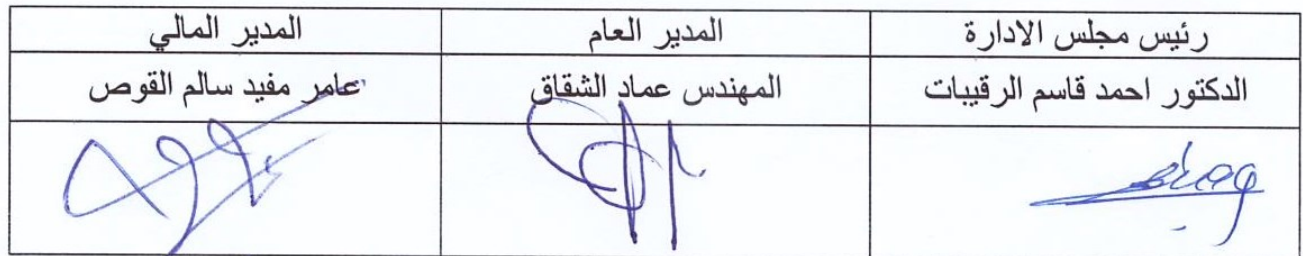 رئيس مجلس الادارة
المدير العام
المدير المالي
الدكتور احمد قاسم الرقيبات
المهندس عماد الشقاق
عامر مفيد سالم القوص